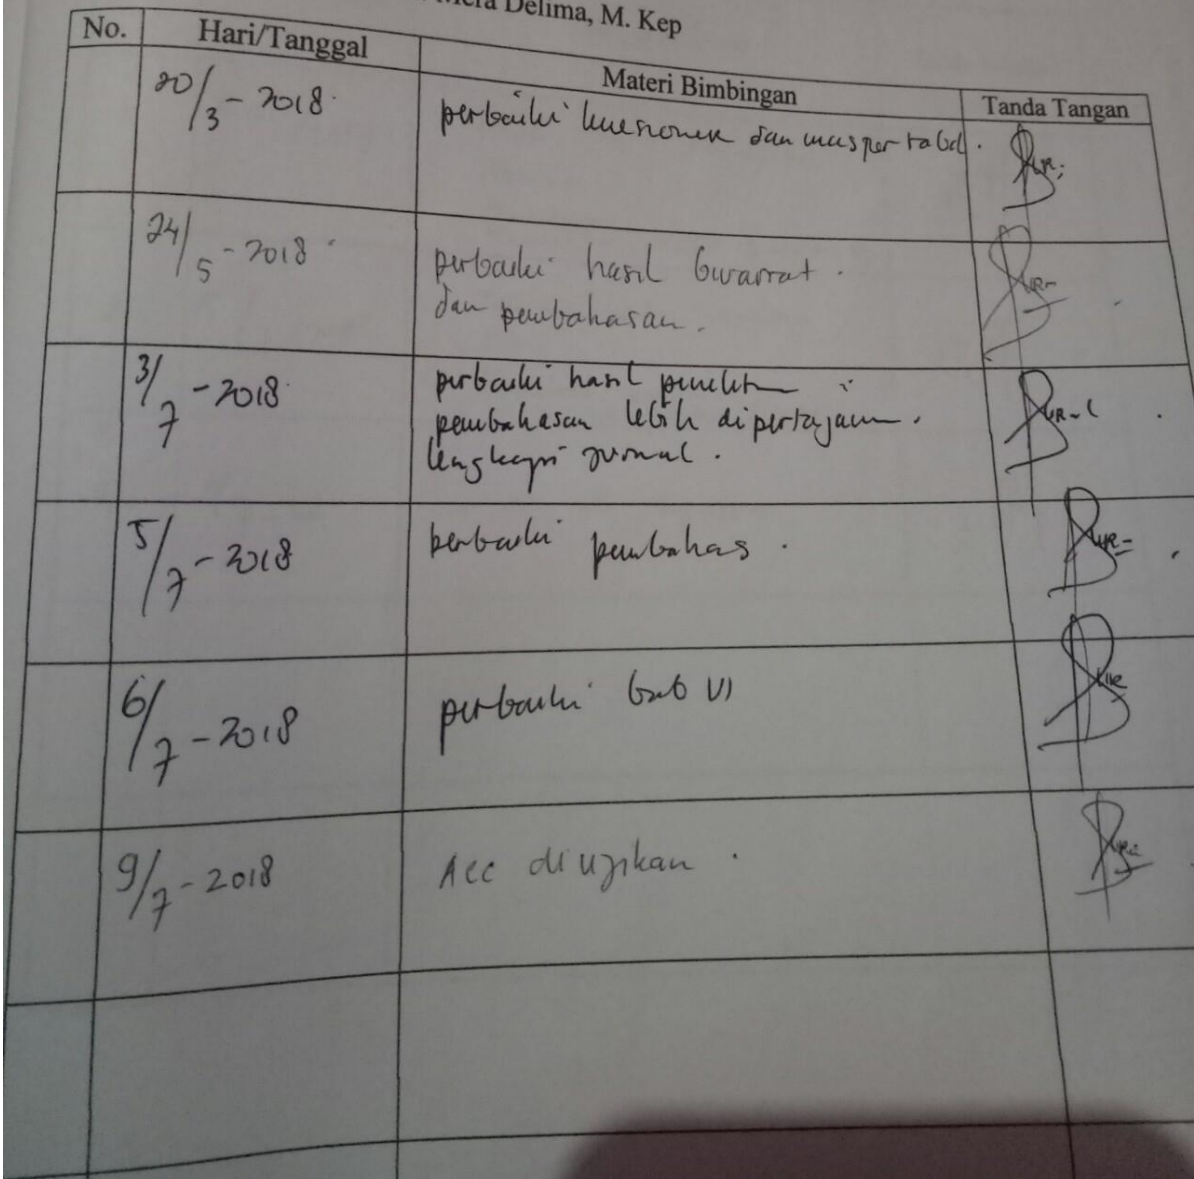 Delima, M. Kep
No. Hari/Tanggal Materi Bimbingan Tanda Tangan
20/3 - 2018. perbaiki kuesioner dan master tabel.
24/5 - 2018 perbaiki hasil bivariat.
dan pembahasan.
3/7 - 2018 perbaiki hasil penelitn
pembahasan lebih dipertajam.
lengkapi jurnal.
5/7 - 2018 perbaiki pembahas.
6/7 - 2018 perbaiki bab VI
9/7 - 2018 Acc diujikan.